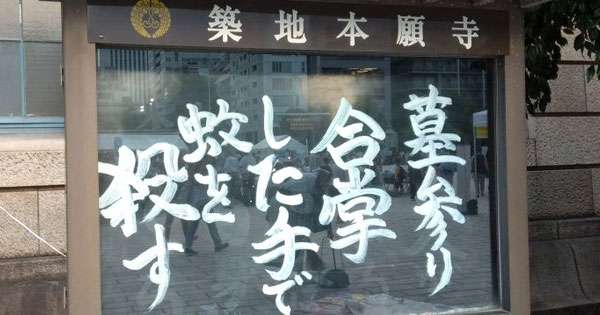 築地本願寺
墓参り
合掌
した手で
蚊を
殺す